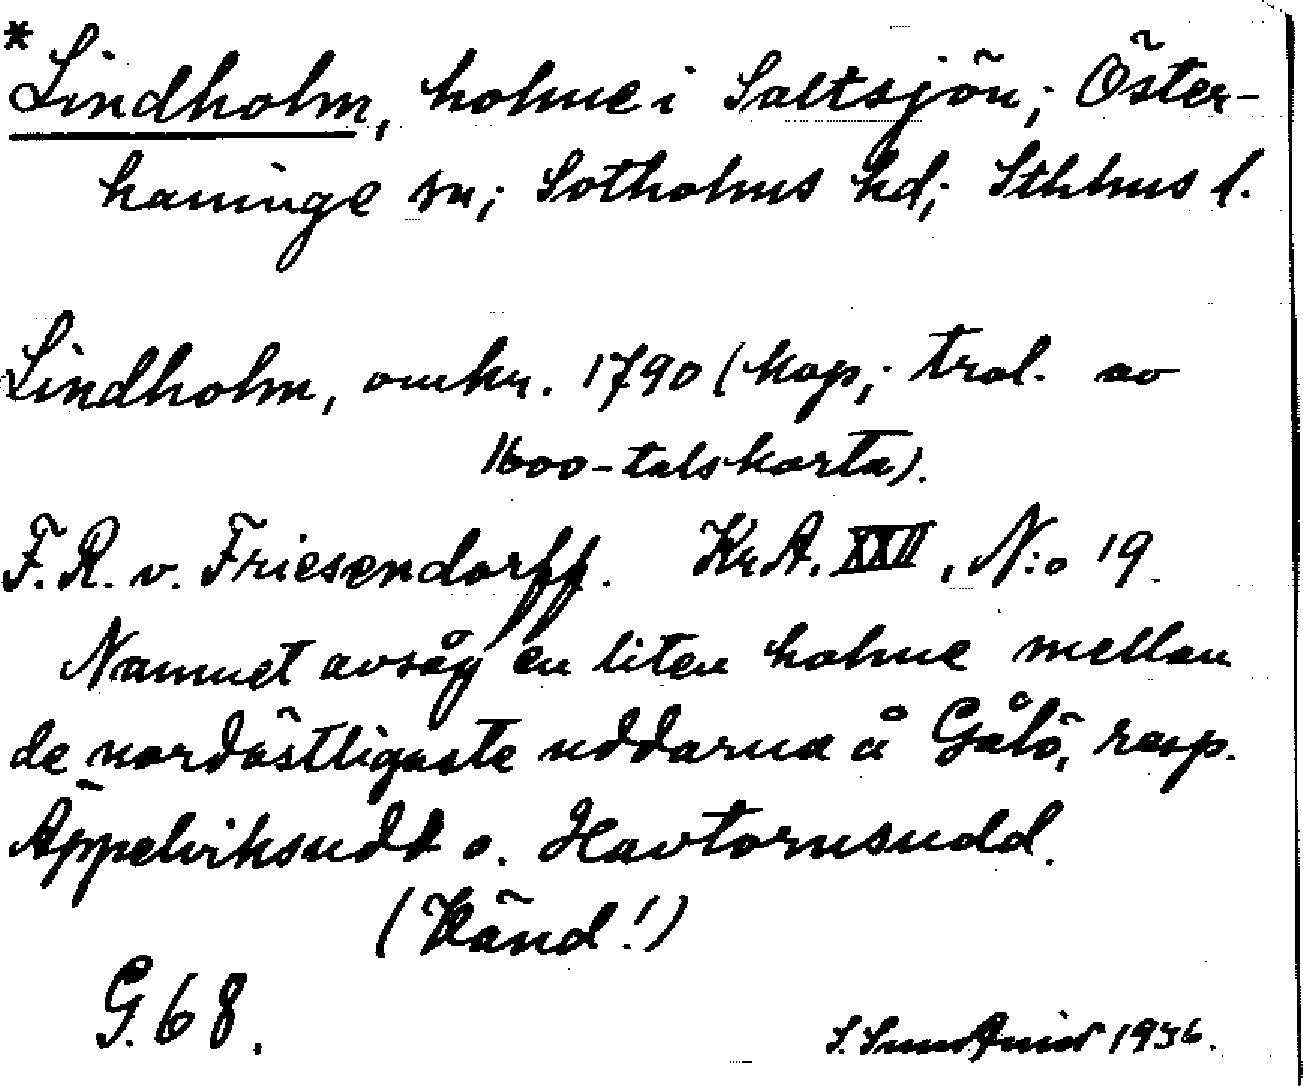 *Lindholm, holme i Saltsjön; Öster-
haninge sn; Sotholms hd; Sthlms l.
Lindholm, omkr. 1790 (kop; trol. av
1600-talskarta).
F. R. v. Friesendorff. Kr. A. XXII, N:o 19.
Namnet avsåg en liten holme mellan
de nordöstligaste uddarna å Gålö, resp.
Äppelviksudd o. Havtornsudd.
(Vänd!)
G. 68.
S. 1936.